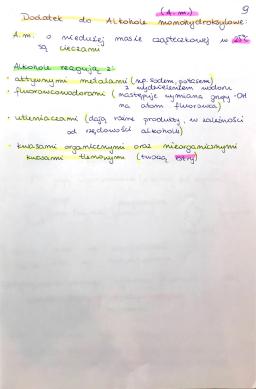 (A.m.) 9
Dodatek do Alkohole monohydroksylowe:
A.m. o niedużej masie cząsteczkowej w 25°C
są cieczami
Alkohole reagują z:
• aktywnymi metalami (np. sodem, potasem)
z wydzieleniem wodoru
• fluorowcowodorami (następuje wymiana grupy -OH
na atom fluorowca)
• utleniaczami (dają różne produkty, w zależności
od rzędowości alkoholu)
• kwasami organicznymi oraz nieorganicznymi
kwasami tlenowymi (tworzą estry)